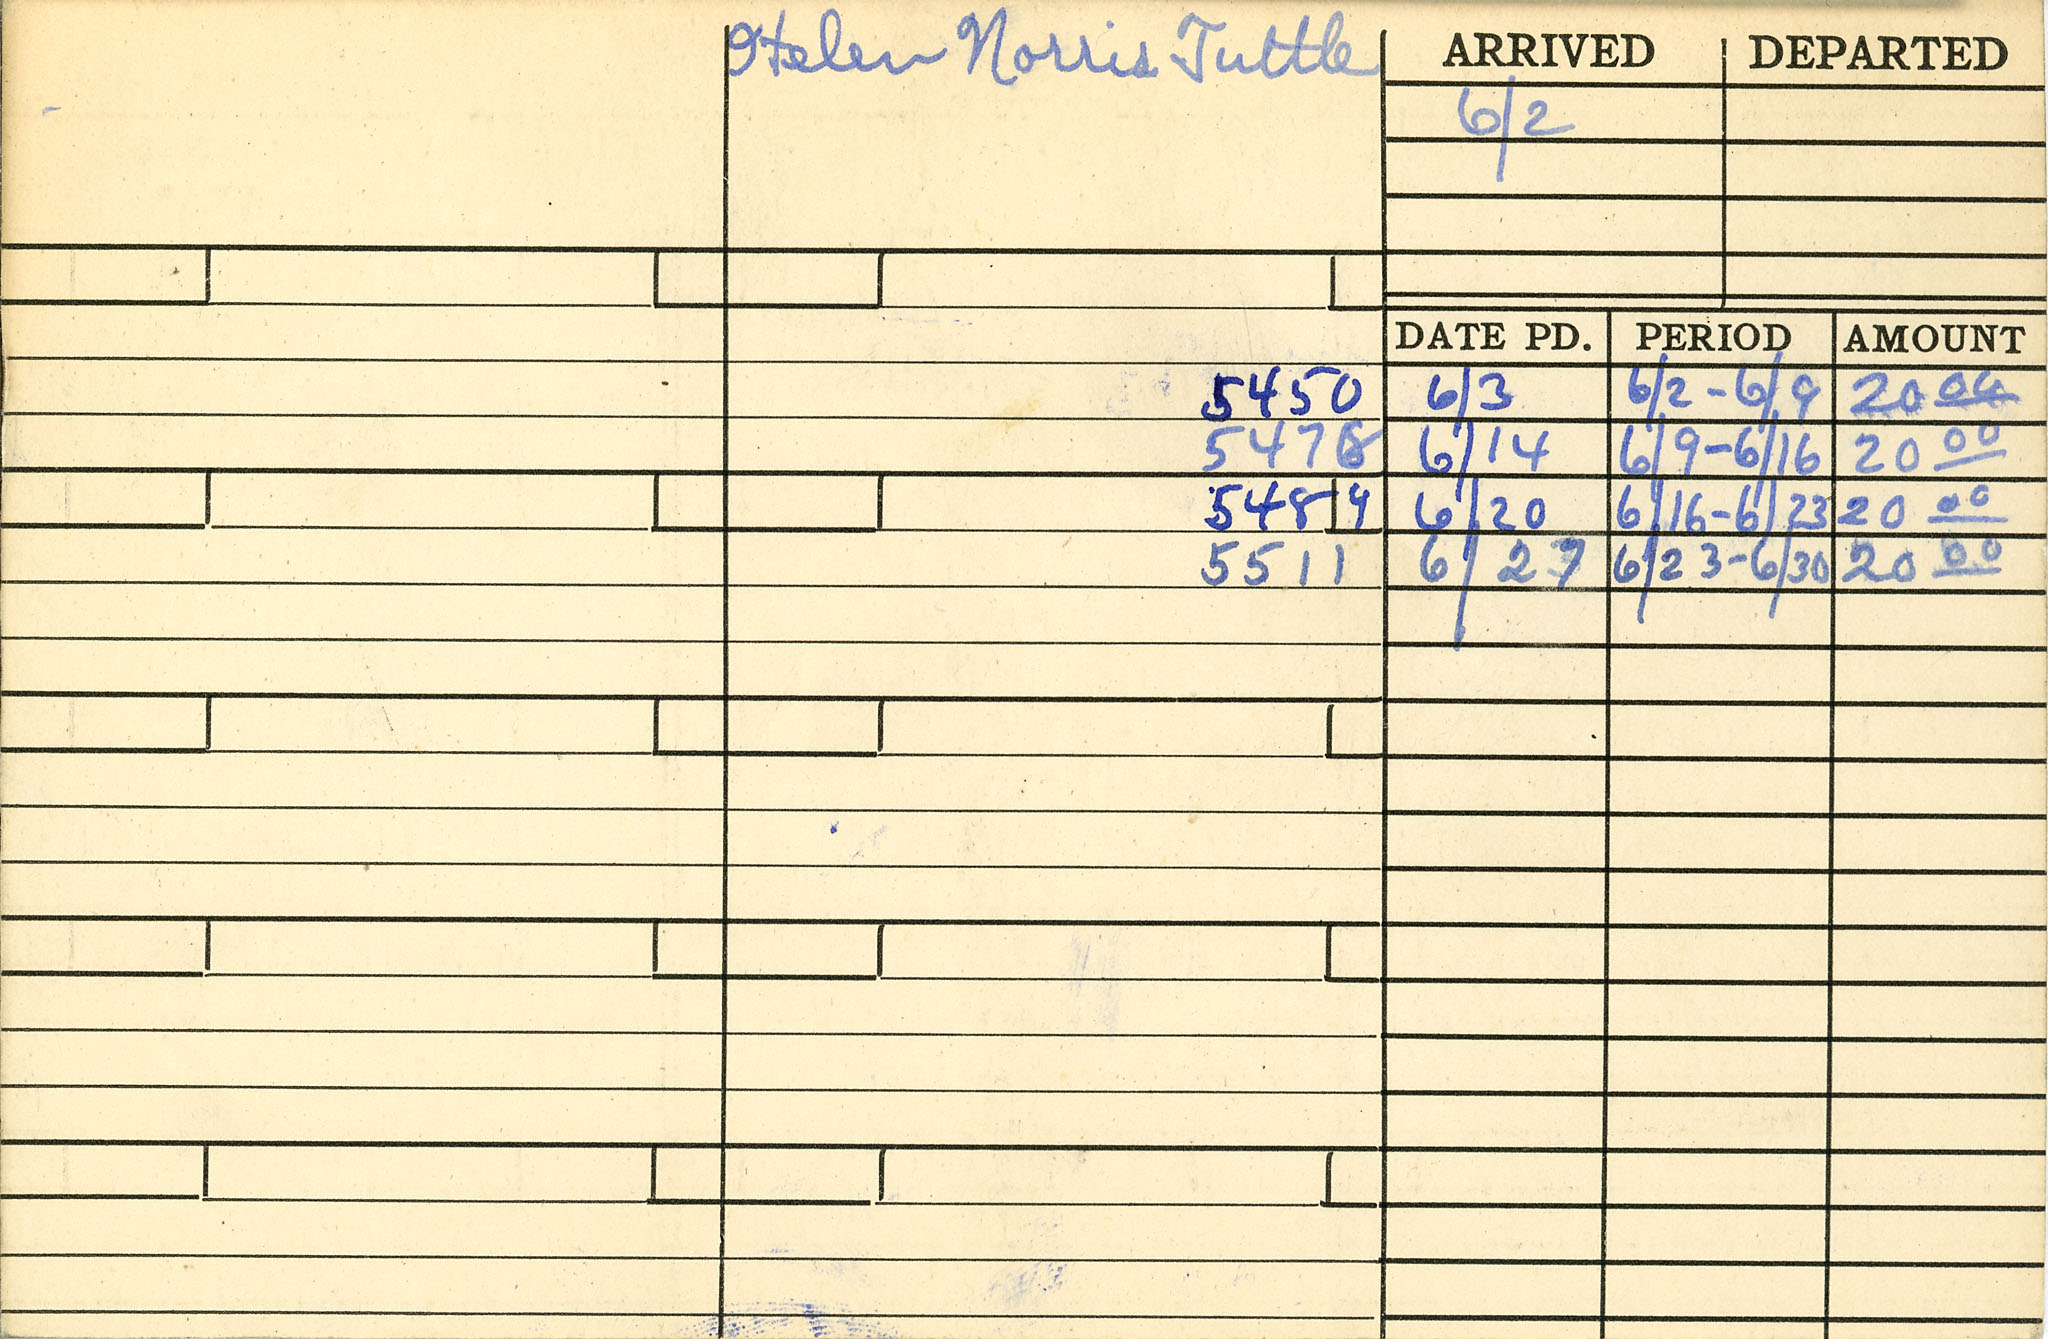 Helen Norris Tuttle ARRIVED DEPARTED
6/2
DATE PD. PERIOD AMOUNT
5450 6/3 6/2-6/9 20 00
5478 6/14 6/9-6/16 20 00
5489 6/20 6/16-6/23 20 00
5511 6/27 6/23-6/30 20 00